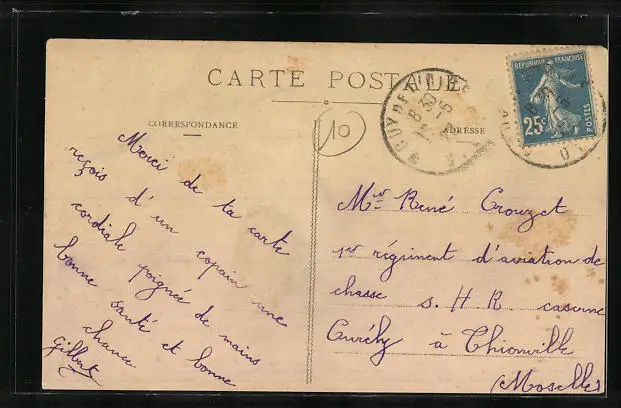 CARTE POSTALE
CORRESPONDANCE
ADRESSE
10
RÉPUBLIQUE FRANÇAISE
25c
POSTES
PUY DE DÔME
8 30
Merci de ta carte
reçois d'un copain une
cordiale poignée de mains
bonne santé et bonne
chance
Gilbert
Mr René Crouzet
1er régiment d'aviation de
chasse S.H.R. caserne
à Thionville
(Moselle)